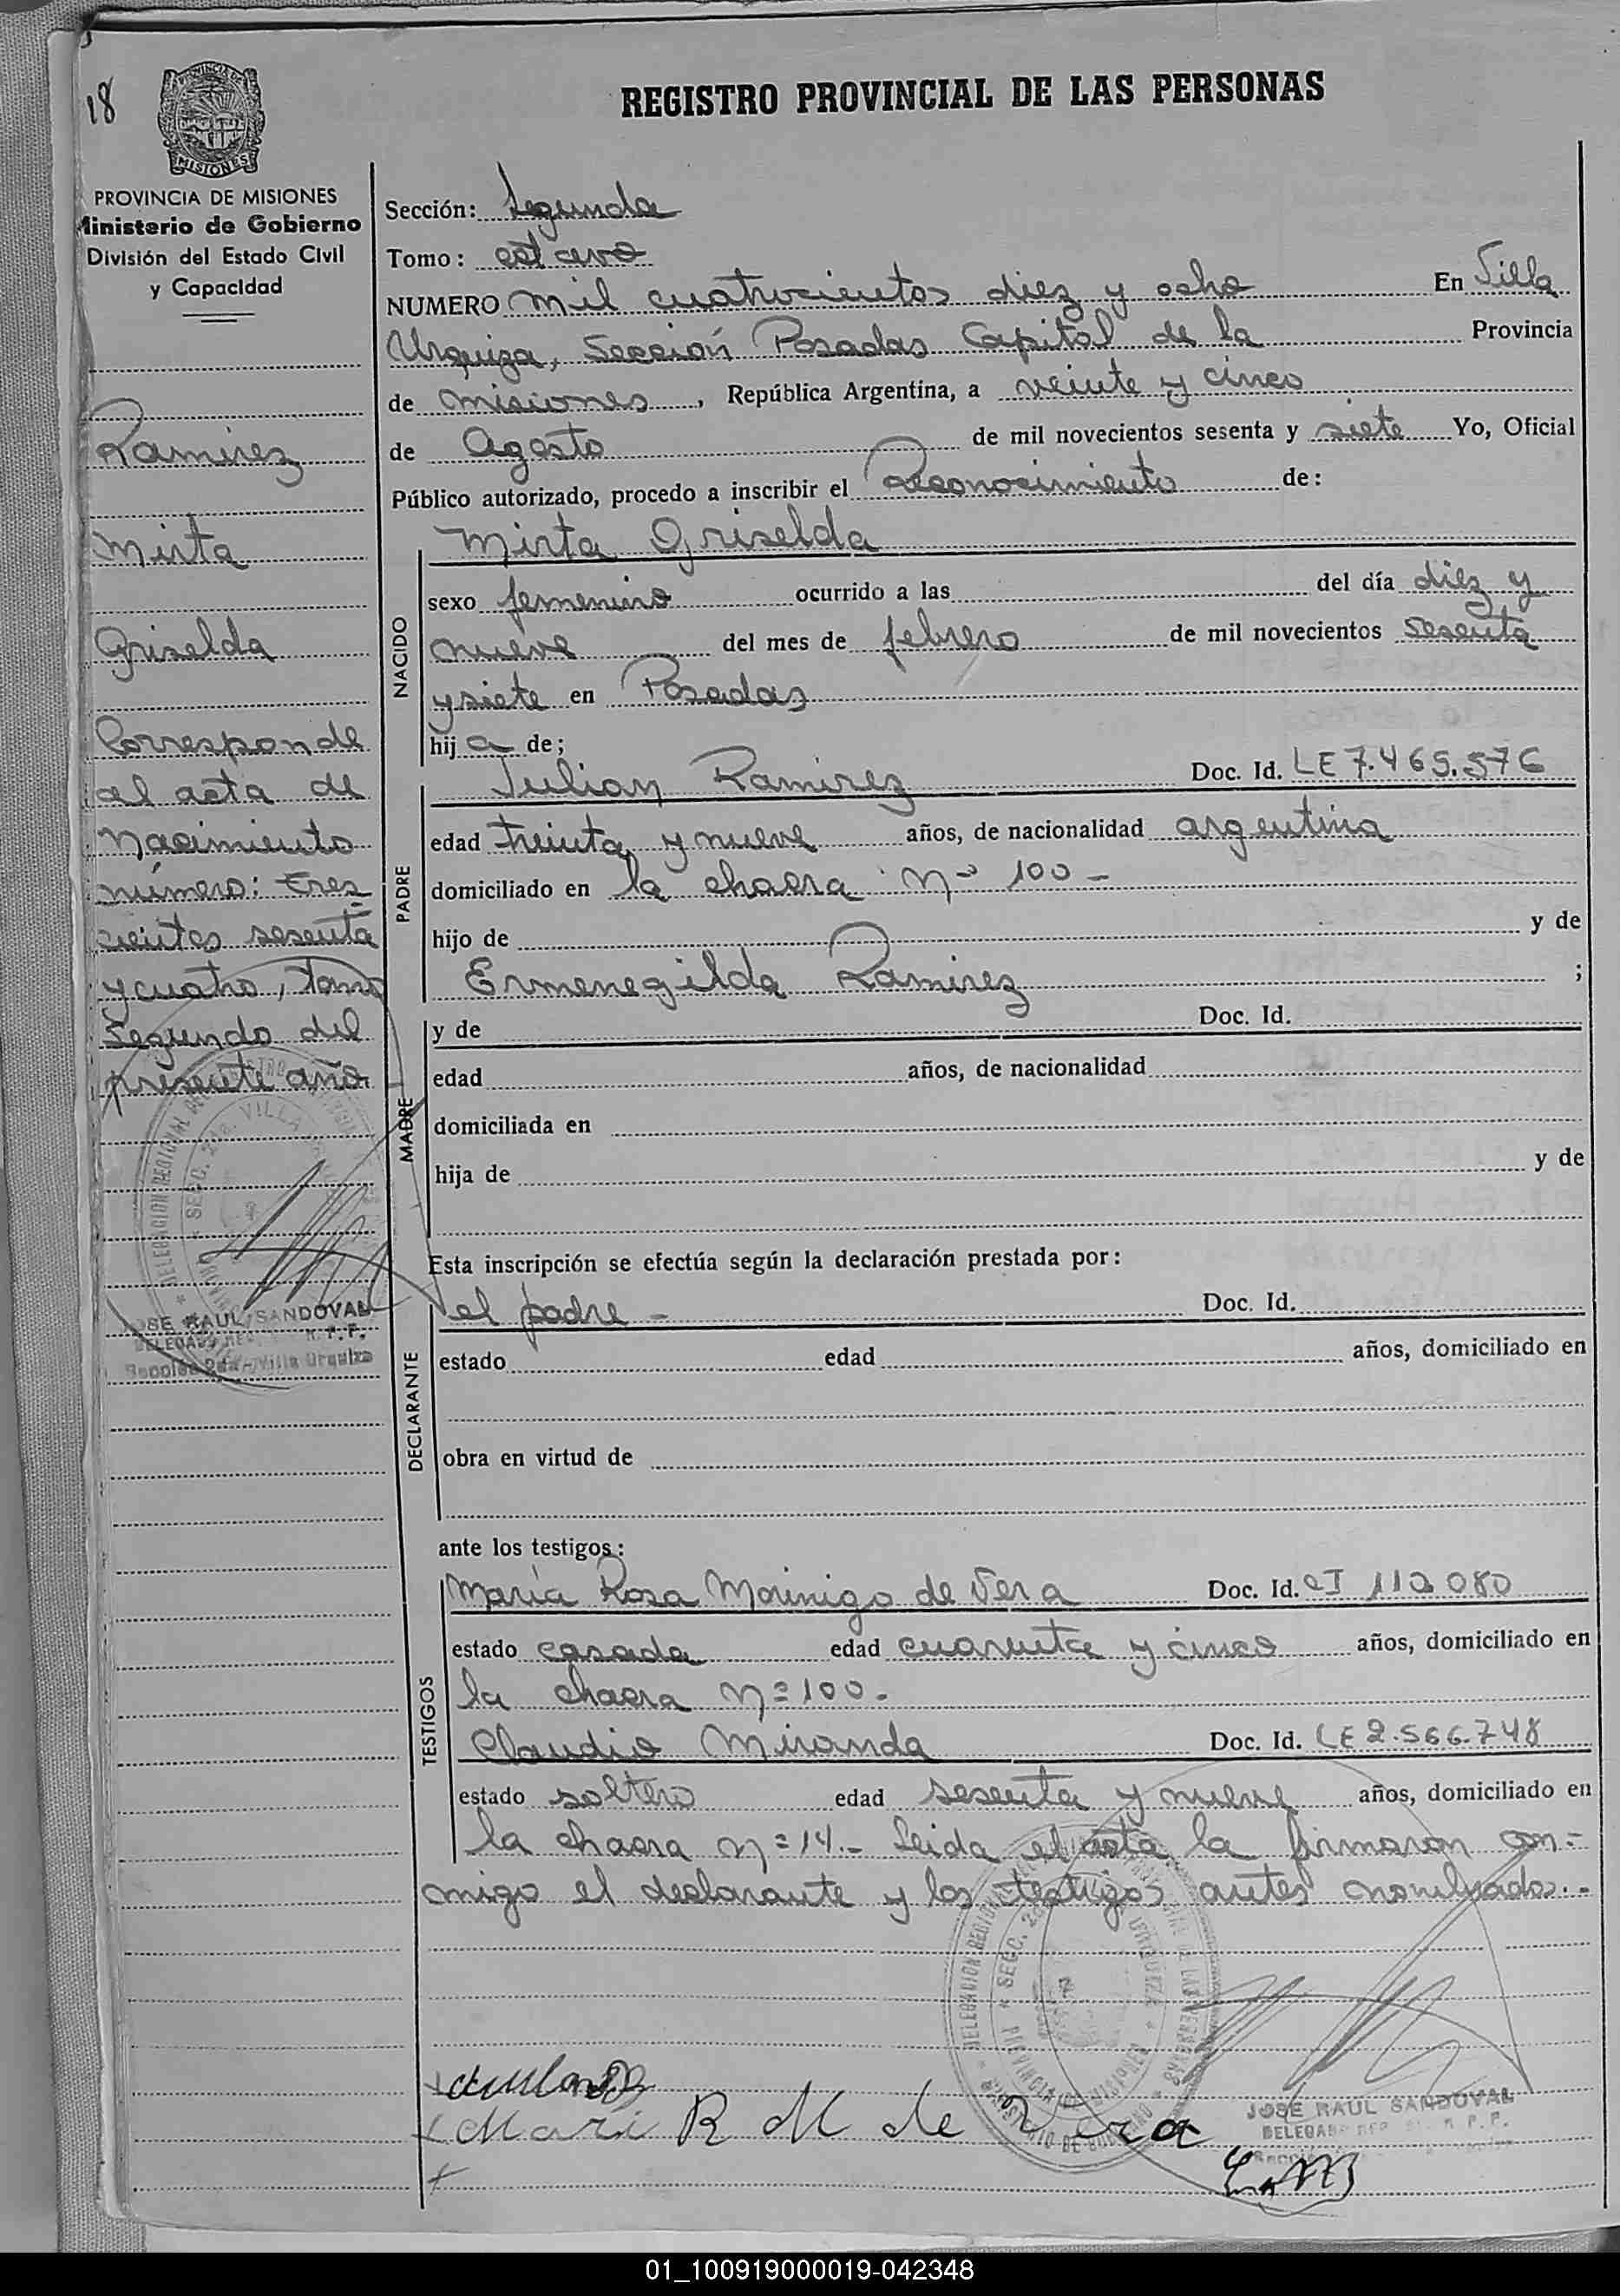 18
PROVINCIA DE MISIONES
Ministerio de Gobierno
División del Estado Civil
y Capacidad
Ramirez
Mirta
Griselda
Corresponde
al acta de
Nacimiento
número: tres
cientos sesenta
y cuatro, tomo
Segundo del
presente año.
JOSE RAUL SANDOVAL
Sección 2da - Villa Urquiza
REGISTRO PROVINCIAL DE LAS PERSONAS
Sección: Segunda
Tomo: octavo
NUMERO mil cuatrocientos diez y ocho En Villa
Urquiza, Sección Posadas Capital de la Provincia
de Misiones, República Argentina, a veinte y cinco
de Agosto de mil novecientos sesenta y siete Yo, Oficial
Público autorizado, procedo a inscribir el Reconocimiento de:
NACIDO
Mirta Griselda
sexo femenino ocurrido a las del día diez y
nueve del mes de febrero de mil novecientos sesenta
y siete en Posadas
hij a de;
PADRE
Julian Ramirez Doc. Id. LE 7.465.576
edad treinta y nueve años, de nacionalidad argentina
domiciliado en la chacra Nº 100 -
hijo de y de
Ermenegilda Ramirez ;
MADRE
y de Doc. Id.
edad años, de nacionalidad
domiciliada en
hija de y de
Esta inscripción se efectúa según la declaración prestada por:
DECLARANTE
el padre - Doc. Id.
estado edad años, domiciliado en
obra en virtud de
ante los testigos:
TESTIGOS
María Rosa Morinigo de Vera Doc. Id. CI 112.080
estado casada edad cuarenta y cinco años, domiciliado en
la chacra Nº 100.
Claudio Miranda Doc. Id. LE 2.566.748
estado soltero edad sesenta y nueve años, domiciliado en
la chacra nº 14.- Leida el acta la firmaron con-
migo el declarante y los testigos antes nombrados.-
Mari R M de Vera
JOSE RAUL SANDOVAL
01_100919000019-042348